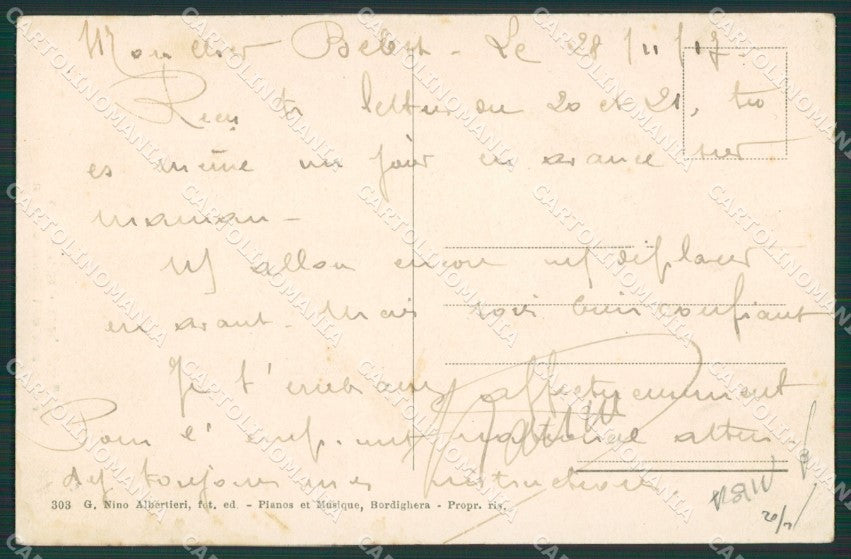 Mon cher Bebert - Le 28/11/17.
Reçu ta lettre du 20 et 21, tu
es même un jour en avance sur
maman -
allon encore déplacer
en avant. Mais sois bien confiant
Je t'embrasse affectueusement
Pour l' national atten
toujours mes instructions
303 G. Nino Albertieri, fot. ed. - Pianos et Musique, Bordighera - Propr. ris.
CARTOLINOMANIA